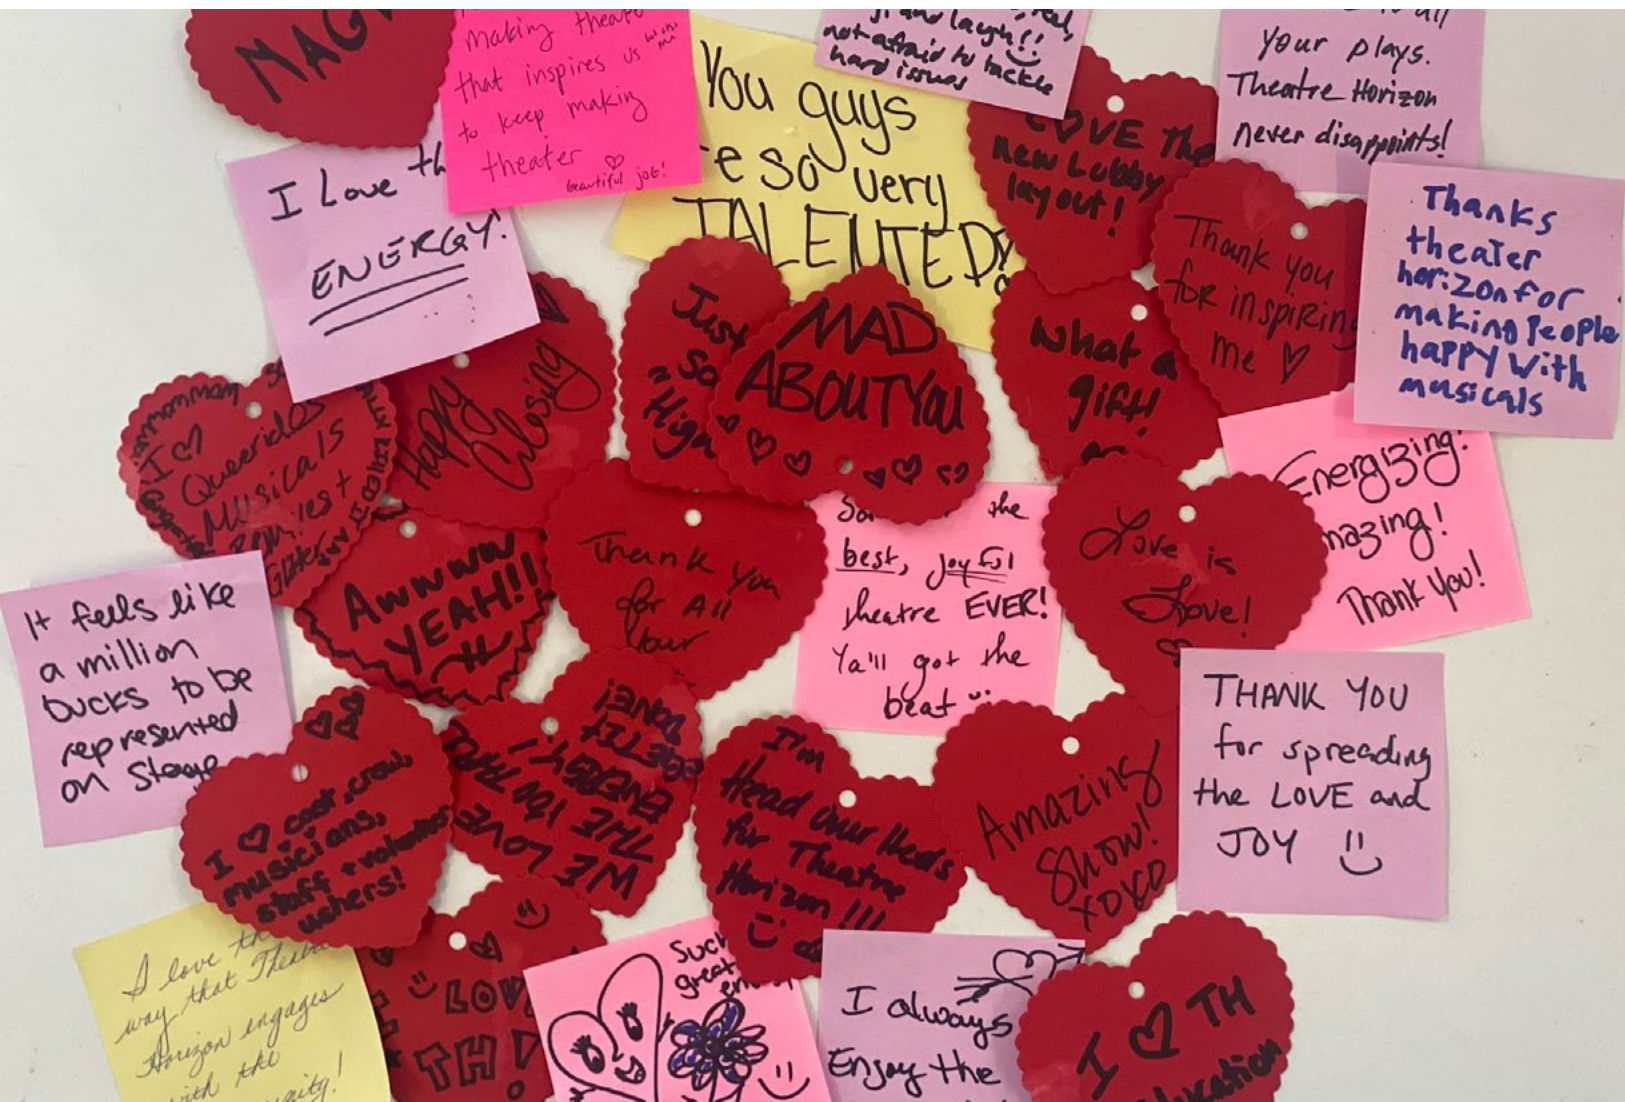 MAG
making theater
that inspires us
to keep making
theater
beautiful job!
You guys
so very
TALENTED
and laugh!!
not afraid to tackle
hard issues
LOVE the
new Lobby
layout!
all
your plays.
Theatre Horizon
never disappoints!
I Love th
ENERGY!
Thank you
for inspiring
me
Thanks
theater
horizon for
making People
happy with
musicals
Just
So
High
MAD
ABOUT YOU
What a
gift!
Happy
Closing
I
Queeridos
Musicals
Awwww
YEAH!!
Thank you
for All
Your
the
best, joyful
theatre EVER!
Ya'll got the
beat
Love is
Love!
Energizing!
mazing!
Thank You!
It feels like
a million
bucks to be
represented
on Stage
I cast, crew
musicians,
staff + volunteer
ushers!
WE LOVE
THE
ENERGY!
I'm
Head Over Heels
for Theatre
Horizon!!!
Amazing
Show!
XOXO
THANK YOU
for spreading
the LOVE and
JOY
I love th
way that Theat
Horizon engages
with the
LOV
TH!
Such
great
I always
Enjoy the
I TH